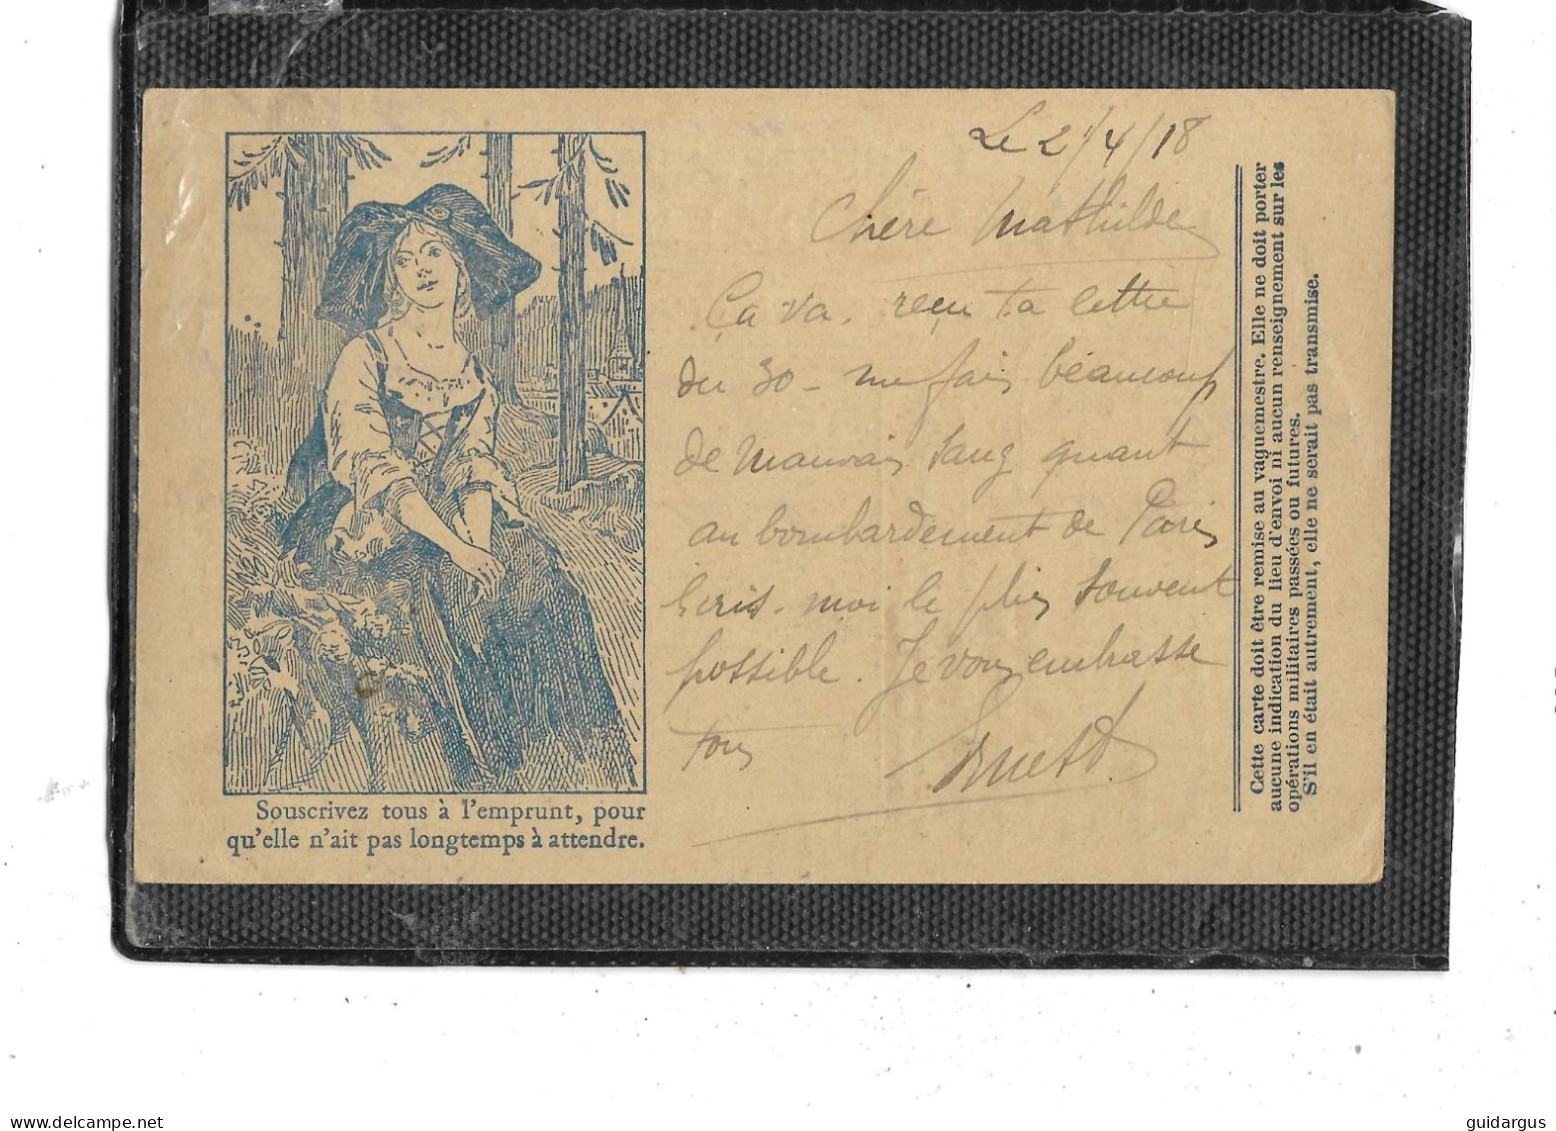 Le 2/4/18
Chère Mathilde
Ça va. reçu ta lettre
du 30 - me fais beaucoup
de mauvais sang quant
au bombardement de Paris
écris-moi le plus souvent
possible. Je vous embrasse
tous
Ernest
Souscrivez tous à l'emprunt, pour
qu'elle n'ait pas longtemps à attendre.
Cette carte doit être remise au vaguemestre. Elle ne doit porter
aucune indication du lieu d'envoi ni aucun renseignement sur les
opérations militaires passées ou futures.
S'il en était autrement, elle ne serait pas transmise.
delcampe.net
guidargus